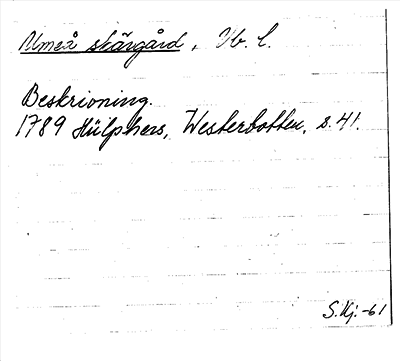 Umeå skärgård, Vb. l.
Beskrivning.
1789 Hülphers, Westerbotten, s. 41.
S. Kj. -61